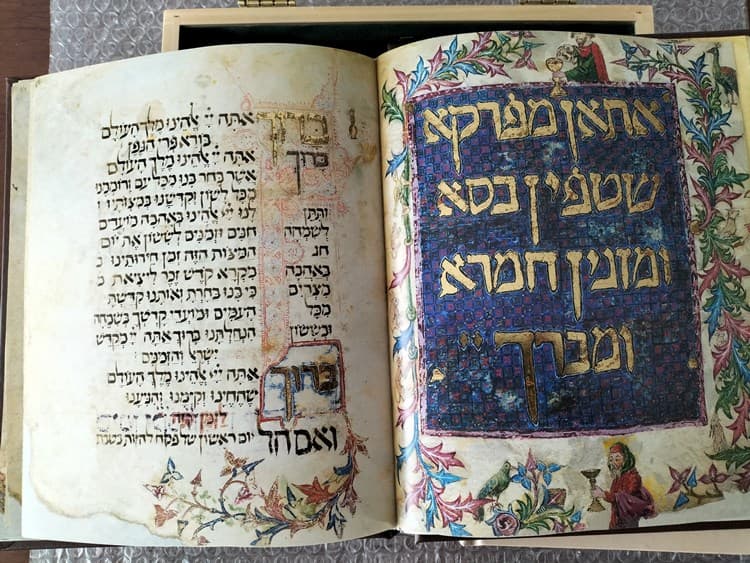 אתאן מפרקא
שטפין כסא
ומזגין חמרא
ומברך יי
ברוך אתה יי אלהינו מלך העולם
בורא פרי הגפן
ברוך אתה יי אלהינו מלך העולם
אשר בחר בנו מכל עם ורוממנו
מכל לשון וקדשנו במצותיו
ותתן לנו יי אלהינו באהבה מועדים
לשמחה חגים וזמנים לששון את יום
חג המצות הזה זמן חירותינו
באהבה מקרא קדש זכר ליציאת
מצרים כי בנו בחרת ואותנו קדשת
מכל העמים ומועדי קדשך בשמחה
ובששון הנחלתנו ברוך אתה יי מקדש
ישראל והזמנים
ברוך אתה יי אלהינו מלך העולם
שהחיינו וקימנו והגיענו
לזמן הזה
ואם חל יום ראשון של פסח להיות בשבת